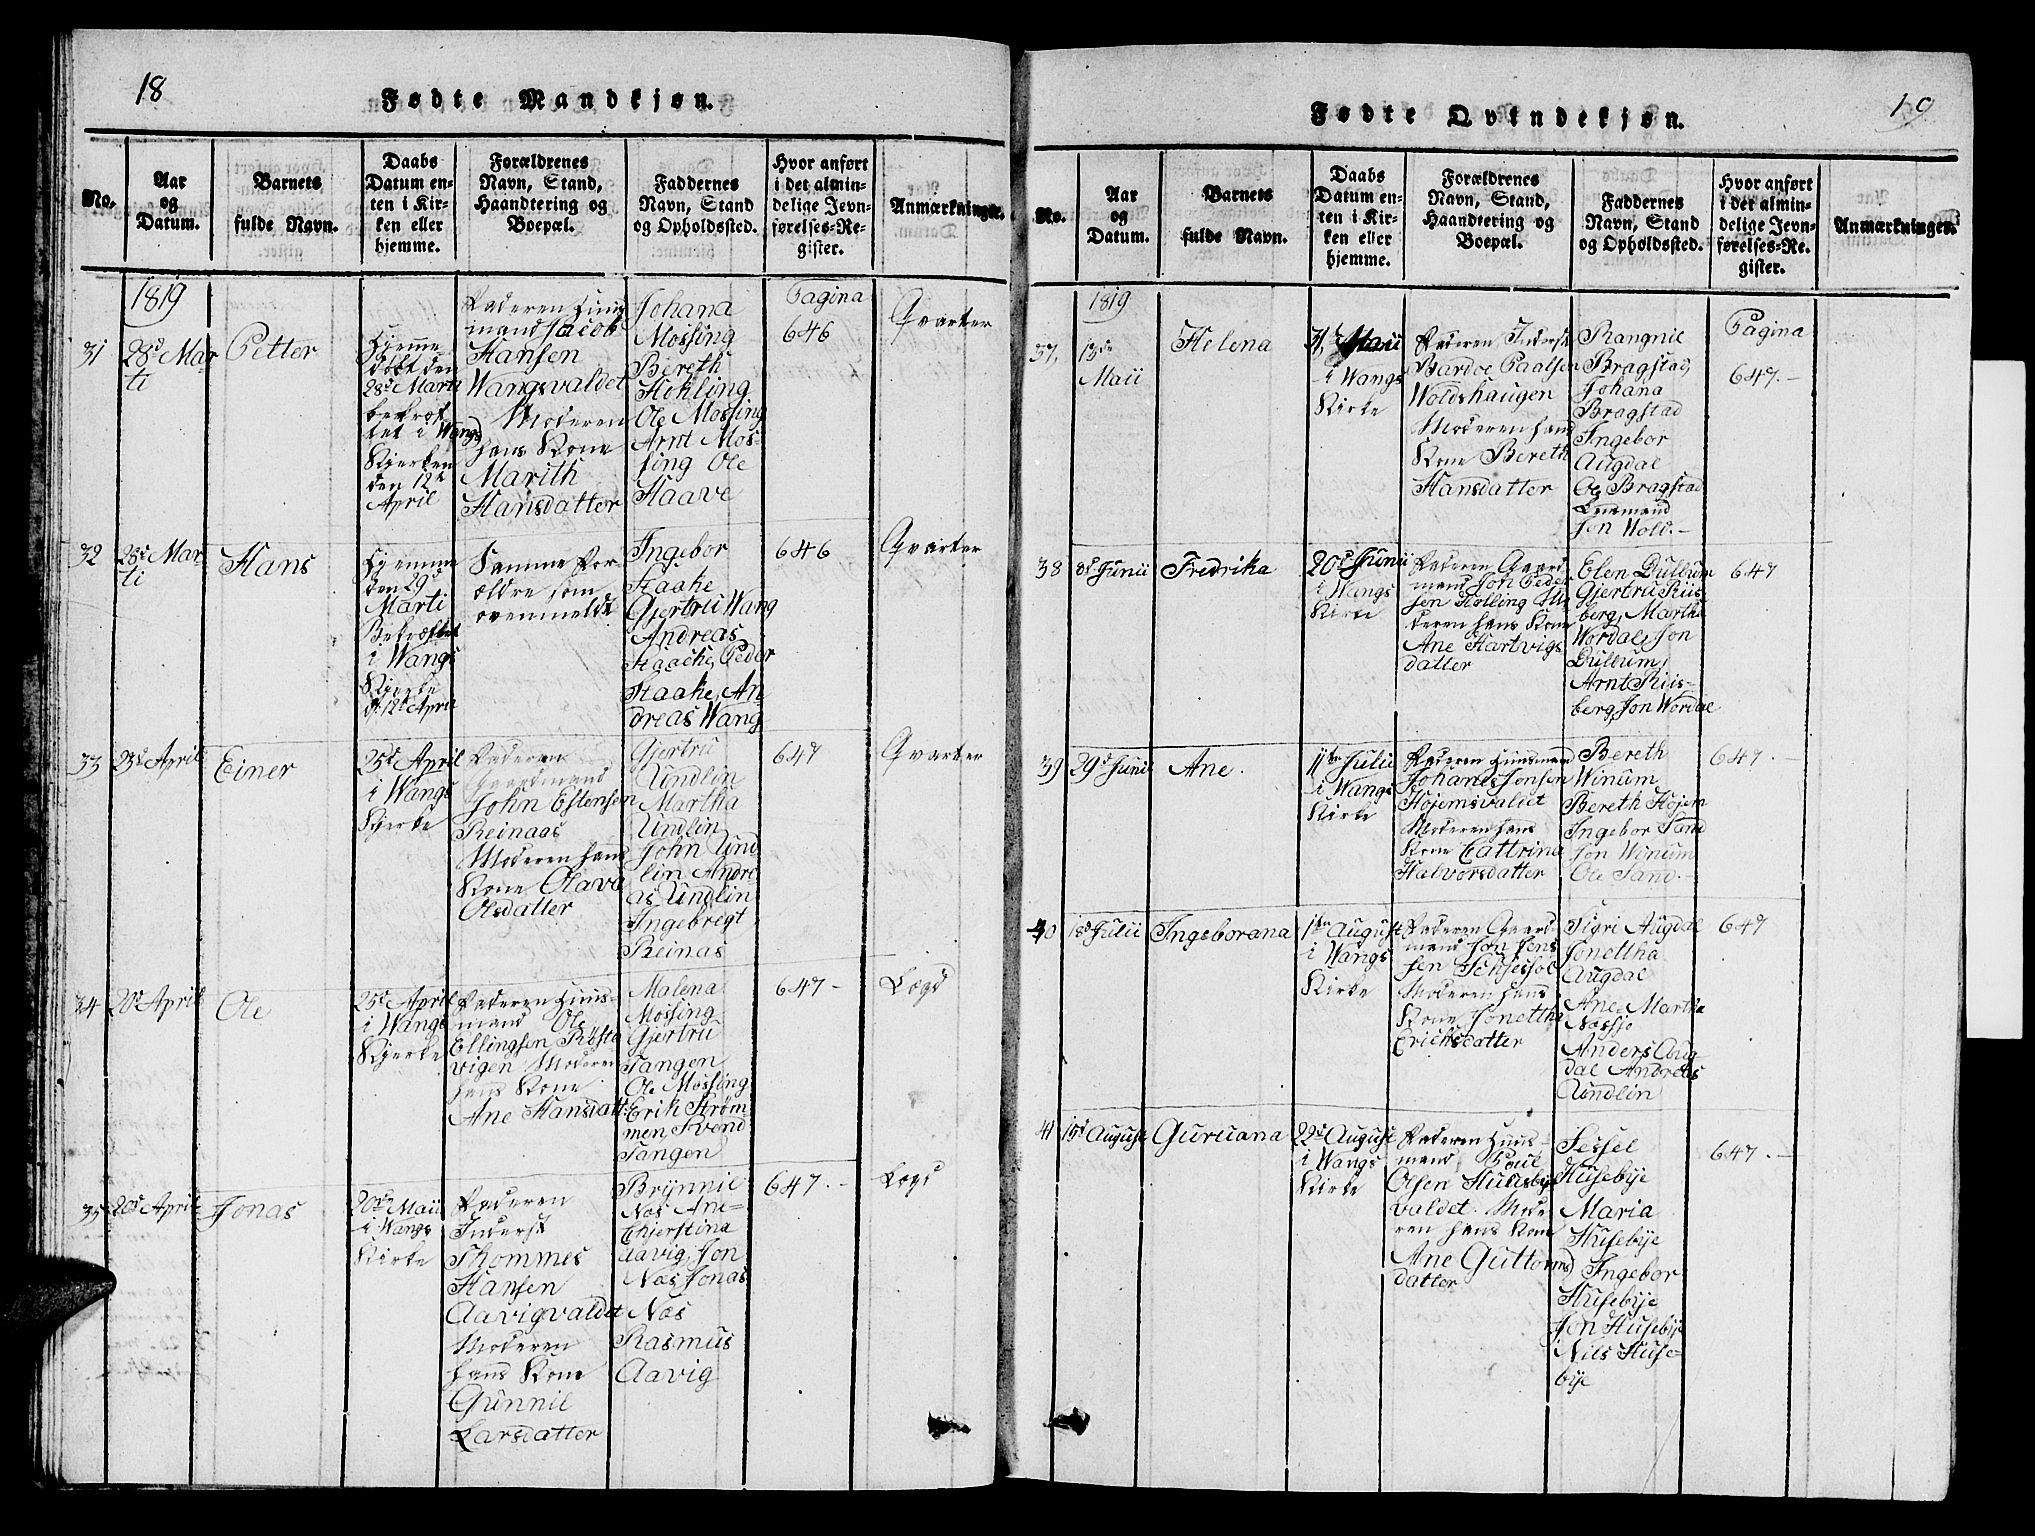 18
Fødte Mandkjøn.
No.
Aar
og
Datum.
Barnets
fulde Navn.
Daabs
Datum en-
ten i Kir-
ken eller
hjemme.
Forældrenes
Navn, Stand,
Haandtering og
Boepæl.
Faddernes
Navn, Stand
og Opholdssted.
Hvor anført
i det almin-
delige Jevn-
førelses-Re-
gister.
Anmærkninger.
1819
31
28d Mar
ti
Petter
Hjemme
døbt den
28d Marti
bekræf
tet i Wangs
Kjerken
den 12te
April
Faderen Huus
mand Jacob
Hansen
Wangsvaldet
Moderen
hans Kone
Marith
Hansdatter
Johana
Mossing
Bereth
Hokling
Ole Mossing
Arnt Mos-
sing Ole
Haave
Pagina
646
Qvarter
32
28d Mar
ti
Hans
Hjemme
den 29d
Marti
Bekræftet
i Wangs
Kjerke
d. 12te April
Samme For
ældre som
ovenmeldt
Ingebor
Haake
Gjertru Wang
Andreas
Haacke Peder
Haake, An
dreas Wang
646
Qvarter
33
23d April
Einer
25d April
i Wangs
Kjerke
Faderen
Gaardmand
John Estensen
Reinaas
Moderen hans
Kone Olava
Olsdatter
Gjertru
Undlin
Martha
Undlin
John Und
lin Andre
as Undlin
Ingebregt
Reinas
647
Qvarter
34
20d April
Ole
25d April
i Wangs
Kjerke
Faderen Huus-
mand Ole
Ellingsen Røsta
vigen Moderen
hans Kone
Ane Hansdatt.
Malena
Mossing
Gjertru
Tangen
Ole Mossing
Erik Strøm
men, Svend
Tangen
647 -
Lægd
35
20d April
Jonas
20d Maii
i Wangs
Kirke
Faderen
Inderst
Thommes
Hansen
Aavigvaldet
Moderen
hans Kone
Gunnil
Larsdatter
Brynnil
Nas Ane
Chjerstina
Aavig, Jon
Nas Jonas
Nas
Rasmus
Aavig
647. -
Lægd
19
Fødte Qvindekjøn.
No.
Aar
og
Datum.
Barnets
fulde Navn.
Daabs
Datum en-
ten i Kir-
ken eller
hjemme.
Forældrenes
Navn, Stand,
Haandtering og
Boepæl.
Faddernes
Navn, Stand
og Opholdssted.
Hvor anført
i det almin-
delige Jevn-
førelses-Re-
gister.
Anmærkninger.
1819
37,
13de
Maii
Helena
31, Maii
i Wangs
Kirke
Faderen Inderst
Bardoe Paalsen
Woldshaugen
Moderen hans
Kone Bereth
Hansdatter
Rangnil
Bragstad,
Johana
Bragstad
Ingebor
Augdal
Ole Bragstad
Lensmand
Jon Wold. -
Pagina
647. -
38
8d Junii
Fredrika
20d Junii
i Wangs
Kirke
Faderen Gaard
mand Jon Peder
sen Holling Mo
deren hans Kone
Ane Hartvigs
datter
Elen Dullum
Gjertru Riis
berg, Martha
Wordal, Jon
Dullum,
Arnt Riis-
berg, Jon Wordal
647
39
29d Junii
Ane.
11te Julii
i Wangs
Kirke
Faderen Huusmand
Johanes Jonsen
Hojemsvaldet
Moderen hans
Kone Cattrina
Halvorsdatter
Bereth
Winum
Bereth Hojem
Ingebor Sand
Jon Winum
Ole Sand. -
647. -
40
18d Julii
Ingeborana
1te August
i Wangs
Kirke
Faderen Gaard
mand Jon Jens
sen Schjesfol
Moderen hans
Kone Jonettha
Erichsdatter
Sigri Augdal
Jonettha
Augdal
Ane Martha
Nossjo
Anders Aug
dal Andreas
Undlin
647
41
15d August
Guruana
22d August
i Wangs
Kirke
Faderen Huus-
mand Poul
Olsen Husebye
valdet. Mode
ren hans Kone
Ane Guttorms
datter
Sessel
Husebye
Maria
Husebye
Ingebor
Husebye
Jon Husebye
Nils Huse-
bye
647. -